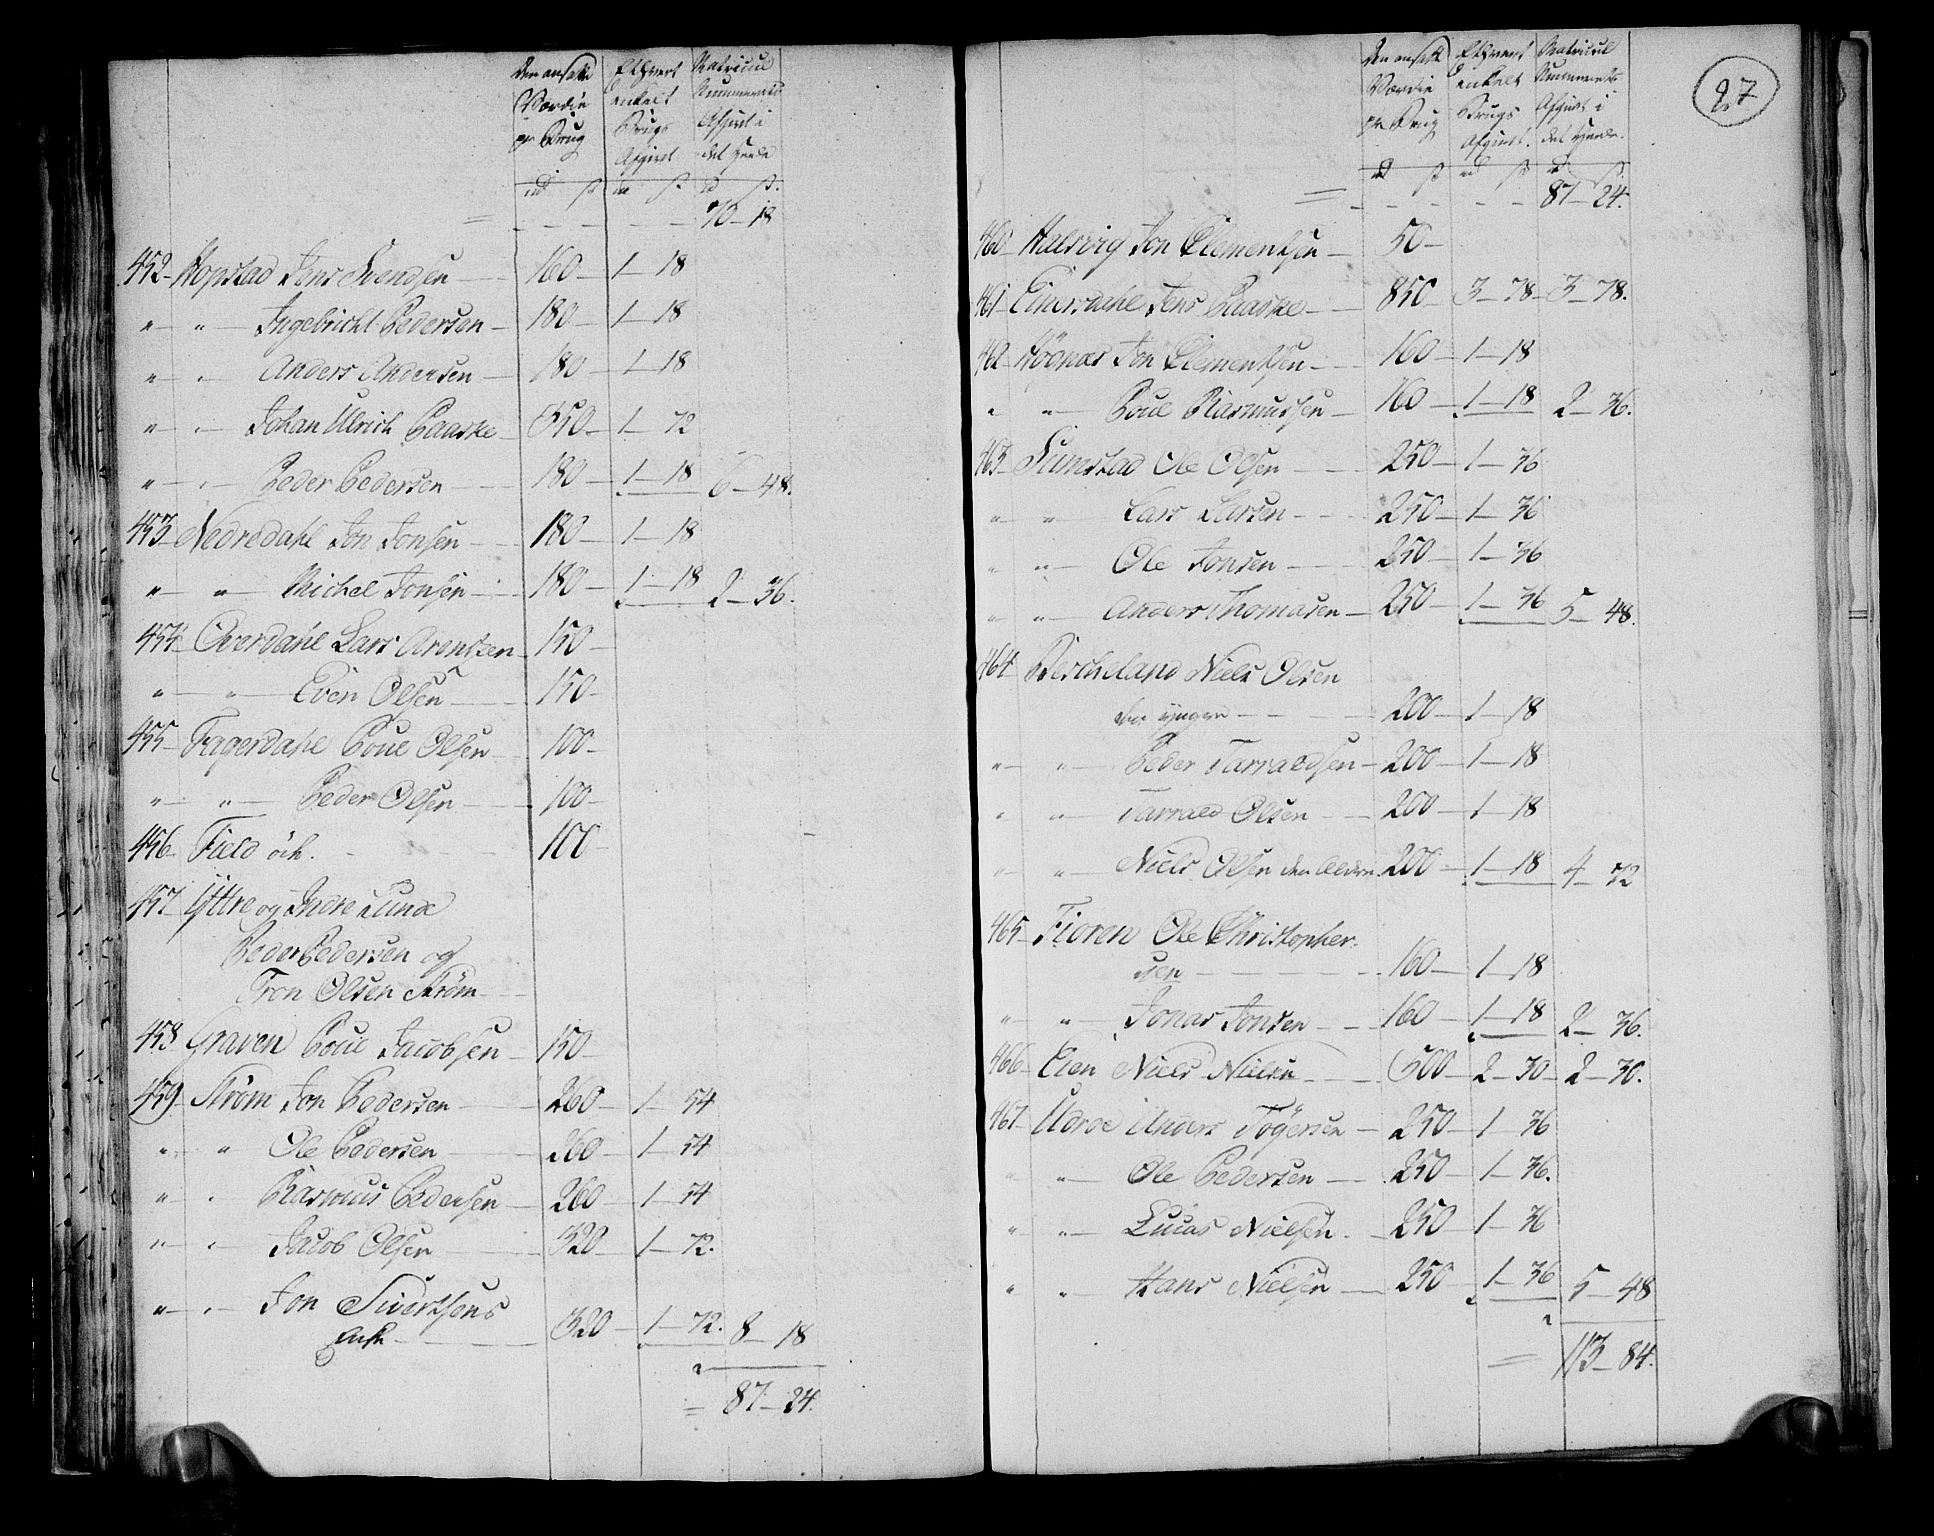 Den ansatte Værdie pr Brug | Ethvert enkelt Brugs Afgivt | Matricul Nummerets Afgivt i det heele
rd ß | rd ß | rd ß.
= - - - - 70 - 18
452 Hopstad Jens Svendsen — 160 — 1 — 18
" — " — Ingebricht Pedersen — 180 — 1 — 18
" — " — Anders Andersen — 180 — 1 — 18
" — " — Johan Ulrich Paaske — 350 — 1 — 72
" — " — Peder Pedersen — 180 — 1 — 18 6 — 48.
453 Nedredahl Jon Jonsen — 180 — 1 — 18
" — " — Michel Jonsen — 180 — 1 — 18 2 — 36.
454 Overdahl Lars Arentsen — 150 —
" — " — Even Olsen — 150 —
455 Fagerdahl Poul Olsen — 100 —
" — " — Peder Olsen — 100 —
456 Field öde. — 100 —
457 Yttre og Indre Lunde
Peder Pedersen og
Tron Olsen Strøm —
458 Graven Poul Jacobsen — 150 —
459 Strøm Jon Pedersen — 260 — 1 — 54
" — " Ole Pedersen — 260 — 1 — 54
" — " Rasmus Pedersen — 260 — 1 — 54
" — " Jacob Olsen — 320 — 1 — 72.
" — " Jon Sivertsens
Enke — 320 — 1 — 72. 8 — 18
= 87 — 24.
27
Den ansatte Værdie pr Brug | Ethvert enkelt Brugs Afgivt. | Matricul Nummerets Afgivt i det heele.
rd ß | rd ß | rd ß
= - - - - 87 — 24.
460 Halsvig Jon Clementsen — 50 —
461 Einersdahl Jens Paaske — 850 — 3 — 78 — 3 — 78.
462 Høgnæs Jon Clementsen — 160 — 1 — 18
" " — Poul Rasmussen — 160 — 1 — 18 2 — 36.
463 Sumstad Ole Olsen — 250 — 1 — 36
" — " Lars Larsen — 250 — 1 — 36
" — " Ole Jonsen — 250 — 1 — 36
" — " Anders Thomasen — 250 — 1 — 36 5 — 48.
464 Bescheland Niels Olsen
den yngre — 200 — 1 — 18
" — " — Peder Tarraldsen — 200 — 1 — 18
" — " — Tarrald Olsen — 200 — 1 — 18
" — " — Niels Olsen den Ældre. 200 — 1 — 18 4 — 72
465 Fioren Ole Christopher-
sen — 160 — 1 — 18
" — " — Jonas Jonsen — 160 — 1 — 18 2 — 36.
466 Eien Niels Nielsen — 600 — 2 — 30 — 2 — 30.
467 Udröe Anders Tøgersen — 250 — 1 — 36
" — " — Ole Pedersen — 250 — 1 — 36.
" — " — Lucas Nielsen. — 250 — 1 — 36
" — " — Hans Nielsen — 250 1 — 36 5 — 48
= 113 — 84.